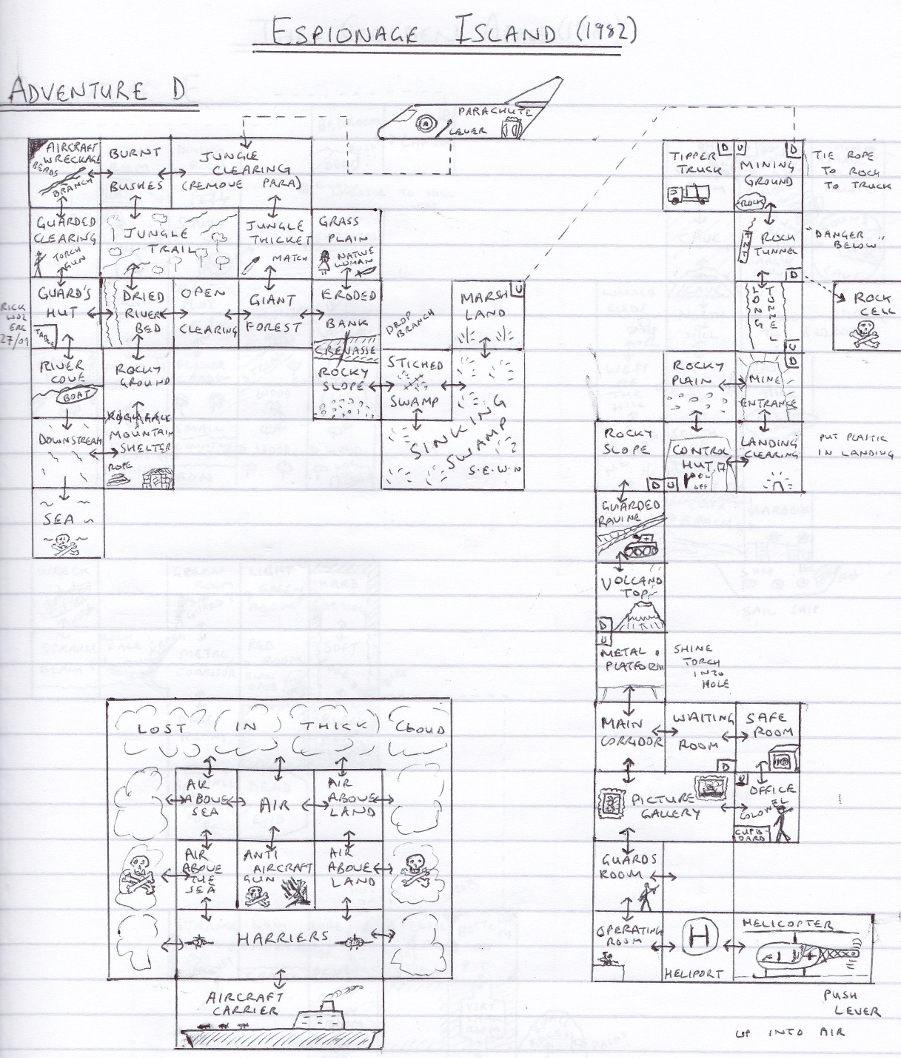 ESPIONAGE ISLAND (1982)
ADVENTURE D
PARACHUTE
LEVER
AIRCRAFT
WRECKAGE
BEADS
BRANCH
BURNT
BUSHES
JUNGLE
CLEARING
(REMOVE PARA)
GUARDED
CLEARING
TORCH
GUN
JUNGLE
TRAIL
JUNGLE
THICKET
MATCH
GRASS
PLAIN
NATIVE
WOMAN
GUARD'S
HUT
DRIED
RIVER
BED
OPEN
CLEARING
GIANT
FOREST
ERODED
BANK
CREVASSE
ROCKY
SLOPE
DROP
BRANCH
MARSH
LAND
U
STICHED
SWAMP
SINKING
SWAMP
S-E-W-N
RIVER
COVE
BOAT
ROCKY
GROUND
DOWNSTREAM
MOUNTAIN
SHELTER
ROPE
SEA
TIPPER
TRUCK
D
U
MINING
GROUND
D
ROCK
TIE ROPE
TO ROCK
TO TRUCK
ROCK
TUNNEL
"DANGER
BELOW"
LONG
TUNNEL
D
U
ROCK
CELL
ROCKY
PLAIN
MINE
ENTRANCE
D
ROCKY
SLOPE
D
U
CONTROL
HUT
LANDING
CLEARING
PUT PLASTIC
IN LANDING
GUARDED
RAVINE
VOLCANO
TOP
D
U
METAL
PLATFORM
SHINE
TORCH
INTO
HOLE
MAIN
CORRIDOR
WAITING
ROOM
D
SAFE
ROOM
PICTURE
GALLERY
U
OFFICE
COLONEL
CUPBOARD
GUARDS
ROOM
OPERATING
ROOM
H
HELIPORT
HELICOPTER
PUSH
LEVER
UP INTO AIR
LOST IN THICK CLOUD
AIR
ABOVE
SEA
AIR
AIR
ABOVE
LAND
AIR
ABOVE
THE
SEA
ANTI
AIRCRAFT
GUN
AIR
ABOVE
LAND
HARRIERS
AIRCRAFT
CARRIER